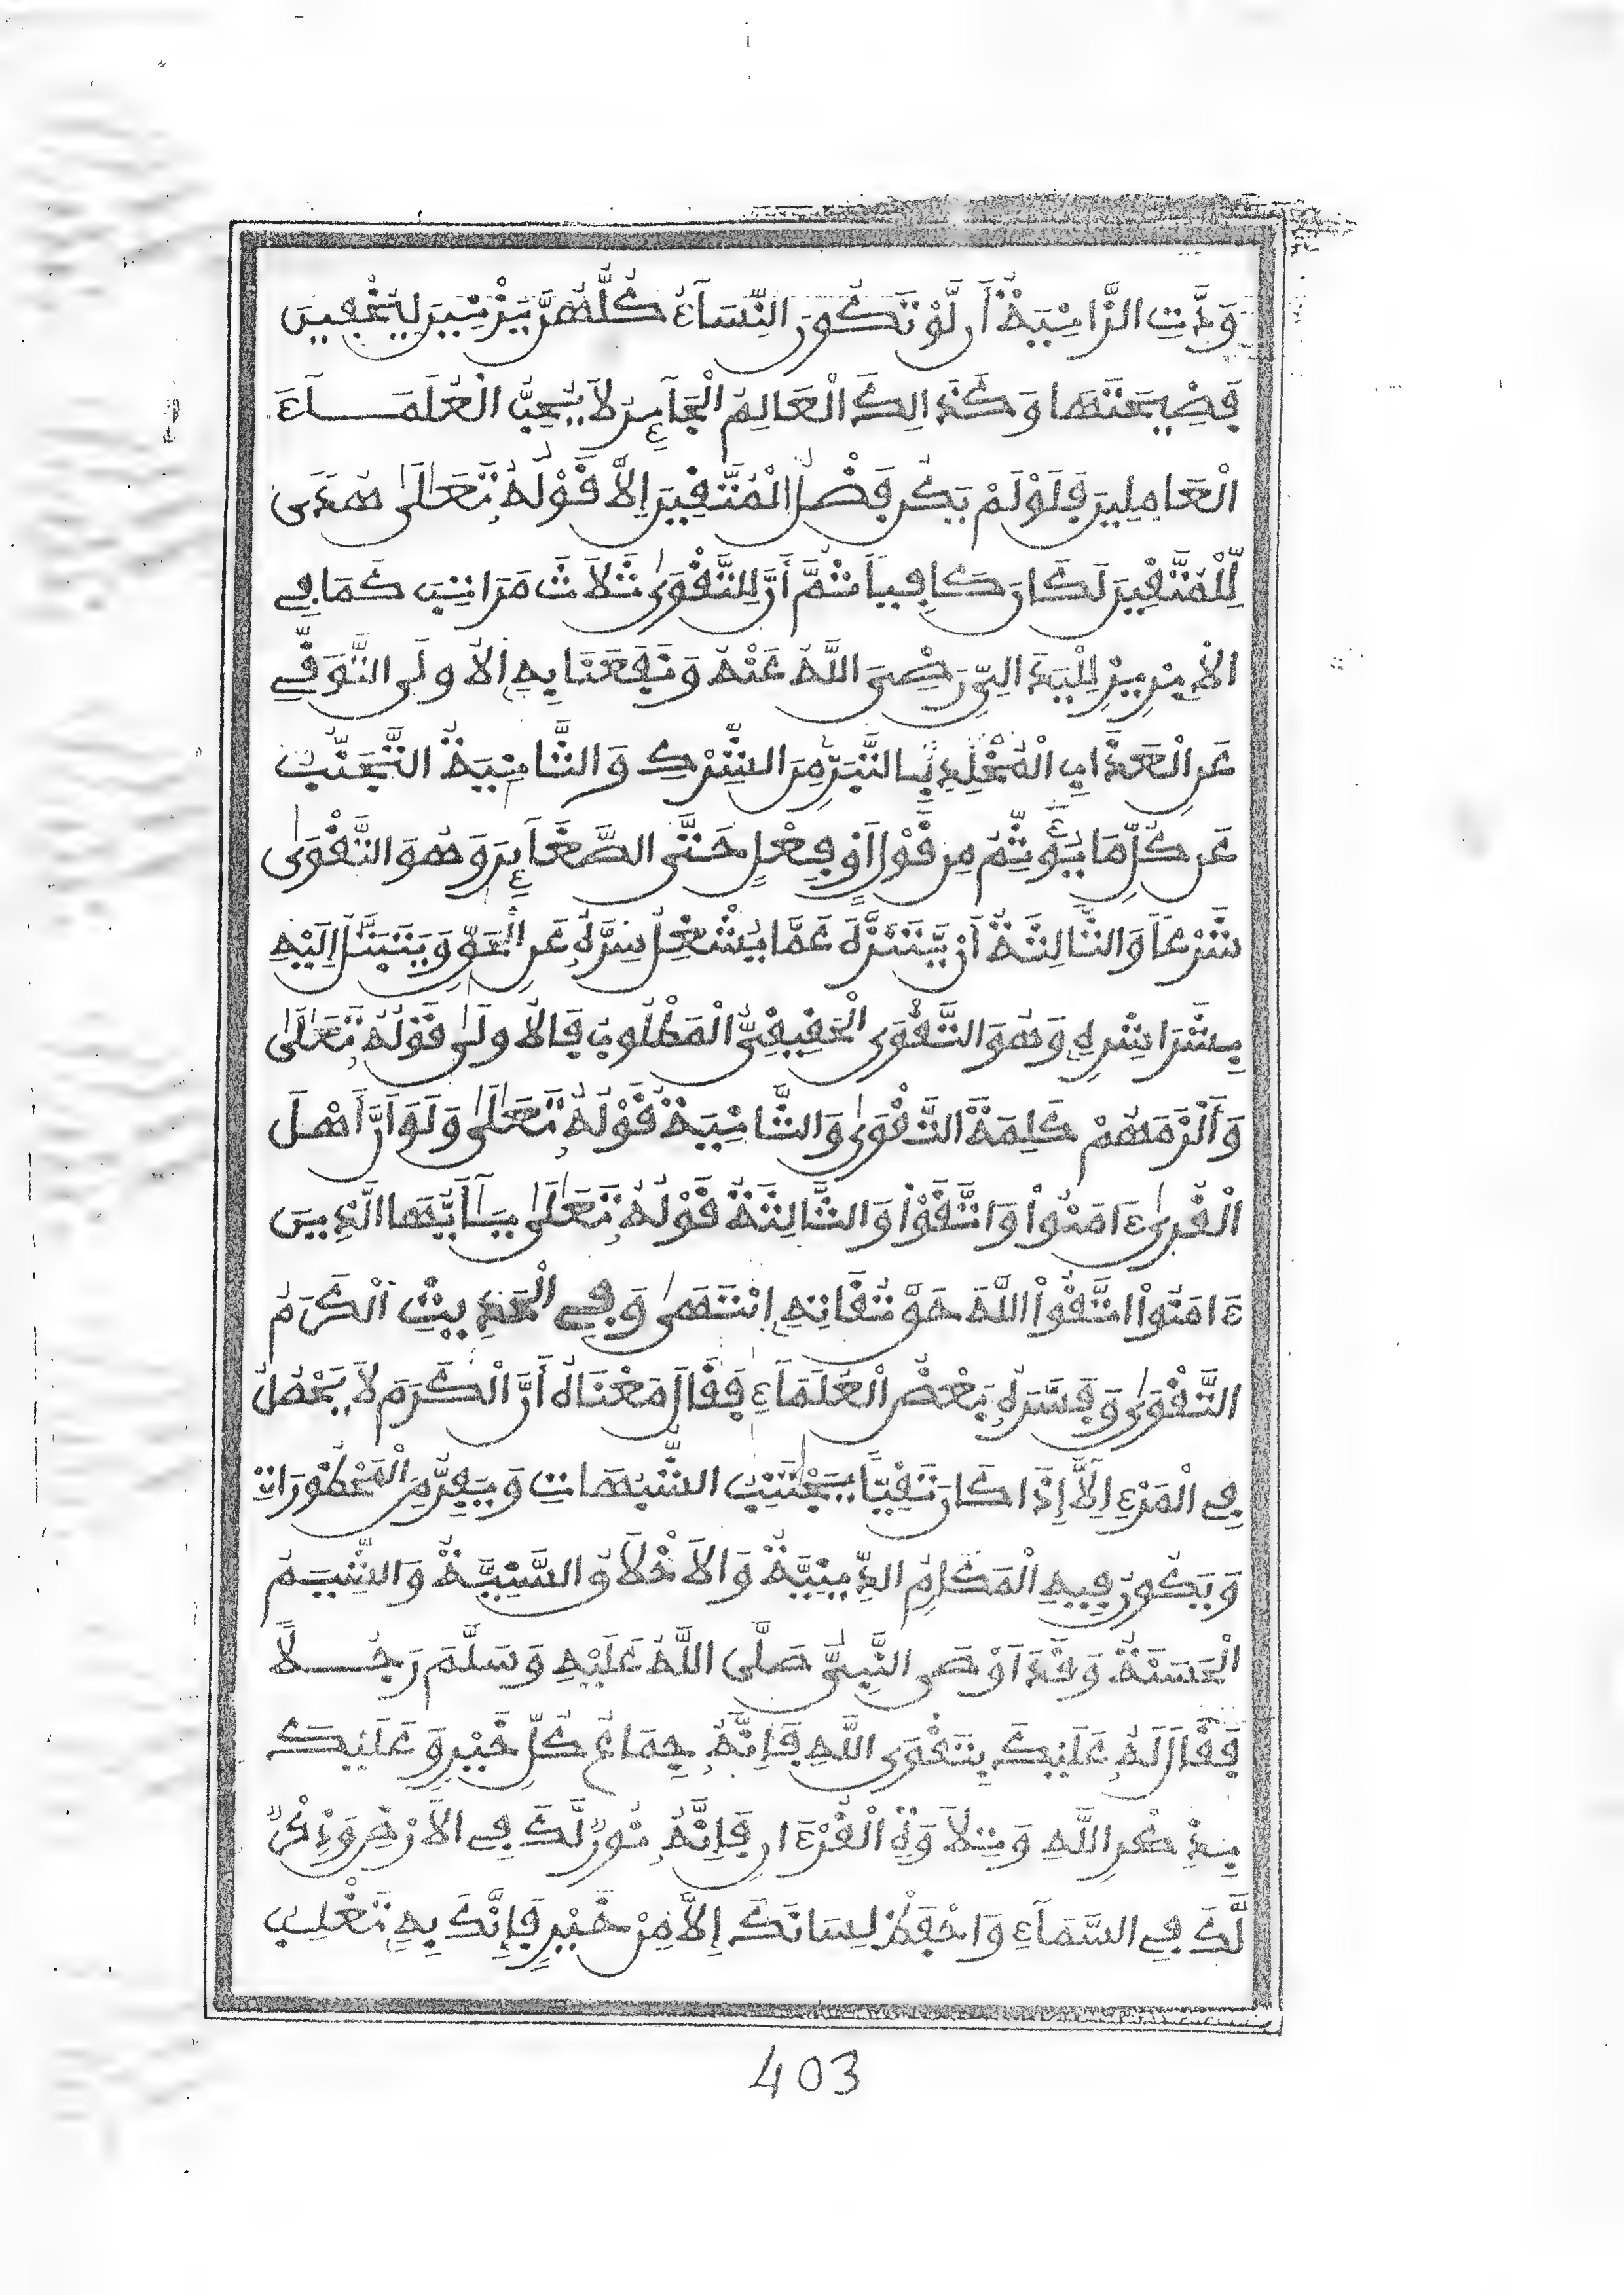 وَدَّتِ الزَّانِيَةُ أَن لَّوْ تَكُونَ النِّسَآءُ كُلُّهُنَّ يَزْنِينَ لِيُخْفِينَ
فَضِيحَتَهَا وَكَذَالِكَ الْعَالِمُ الْجَآئِرُ لَا يُحِبُّ الْعُلَمَآءَ
الْعَامِلِينَ فَلَوْ لَمْ يَكُن فَضْلُ الْمُتَّقِينَ إِلَّا قَوْلُهُ تَعَالَىٰ هُدًى
لِّلْمُتَّقِينَ لَكَانَ كَافِياً ثُمَّ أَنَّ لِلتَّقْوَىٰ ثَلَاثَ مَرَاتِبَ كَمَا فِي
الْإِبْرِيزِ لِلْيَدَالِيِّ رَضِيَ اللَّهُ عَنْهُ وَنَفَعَنَا بِهِ الْأُولَى التَّوَقِّي
عَنِ الْعَذَابِ الْمُخَلِّدِ بِالتَّبَرِّ مِنَ الشِّرْكِ وَالثَّانِيَةُ التَّجَنُّبُ
عَن كُلِّ مَا يُؤَثِّمُ مِن قَوْلٍ أَوْ فِعْلٍ حَتَّى الصَّغَآئِرَ وَهُوَ التَّقْوَىٰ
شَرْعاً وَالثَّالِثَةُ أَنْ يَّتَنَزَّهَ عَمَّا يُشْغِلُ سِرَّهُ عَنِ الْحَقِّ وَيَتَبَتَّلَ إِلَيْهِ
بِشَرَاشِرِهِ وَهُوَ التَّقْوَى الْحَقِيقِيُّ الْمَطْلُوبُ فَالْأُولَىٰ قَوْلُهُ تَعَالَىٰ
وَأَلْزَمَهُمْ كَلِمَةَ التَّقْوَىٰ وَالثَّانِيَةُ قَوْلُهُ تَعَالَىٰ وَلَوَ اَنَّ أَهْلَ
الْقُرَىٰ ءَامَنُواْ وَاتَّقَوْاْ وَالثَّالِثَةُ قَوْلُهُ تَعَالَىٰ يَـٰٓأَيُّهَا الَّذِينَ
ءَامَنُواْ اتَّقُواْ اللَّهَ حَقَّ تُقَاتِهِ انْتَهَىٰ وَفِي الْحَدِيثِ الْكَرَمُ
التَّقْوَىٰ وَفَسَّرَهُ بَعْضُ الْعُلَمَآءِ فَقَالَ مَعْنَاهُ أَنَّ الْكَرَمَ لَا يَحْصُلُ
فِي الْمَرْءِ إِلَّا إِذَا كَانَ تَقِيًّا يَجْتَنِبُ الشُّبُهَاتِ وَيَفِرُّ مِنَ الْمَحْظُورَاتِ
وَيَكُونُ فِيهِ الْمَكَارِمُ الدِّينِيَّةُ وَالْأَخْلَاقُ السَّنِيَّةُ وَالشِّيَمُ
الْحَسَنَةُ وَقَدَ اَوْصَى النَّبِيُّ صَلَّى اللَّهُ عَلَيْهِ وَسَلَّمَ رَجُلًا
فَقَالَ لَهُ عَلَيْكَ بِتَقْوَى اللَّهِ فَإِنَّهُ جِمَاعُ كُلِّ خَيْرٍ وَعَلَيْكَ
بِذِكْرِ اللَّهِ وَتِلَاوَةِ الْقُرْءَانِ فَإِنَّهُ نُورٌ لَّكَ فِي الْأَرْضِ وَذِكْرٌ
لَّكَ فِي السَّمَآءِ وَاحْفَظْ لِسَانَكَ إِلَّا مِنْ خَيْرٍ فَإِنَّكَ بِهِ تَغْلِبُ
403